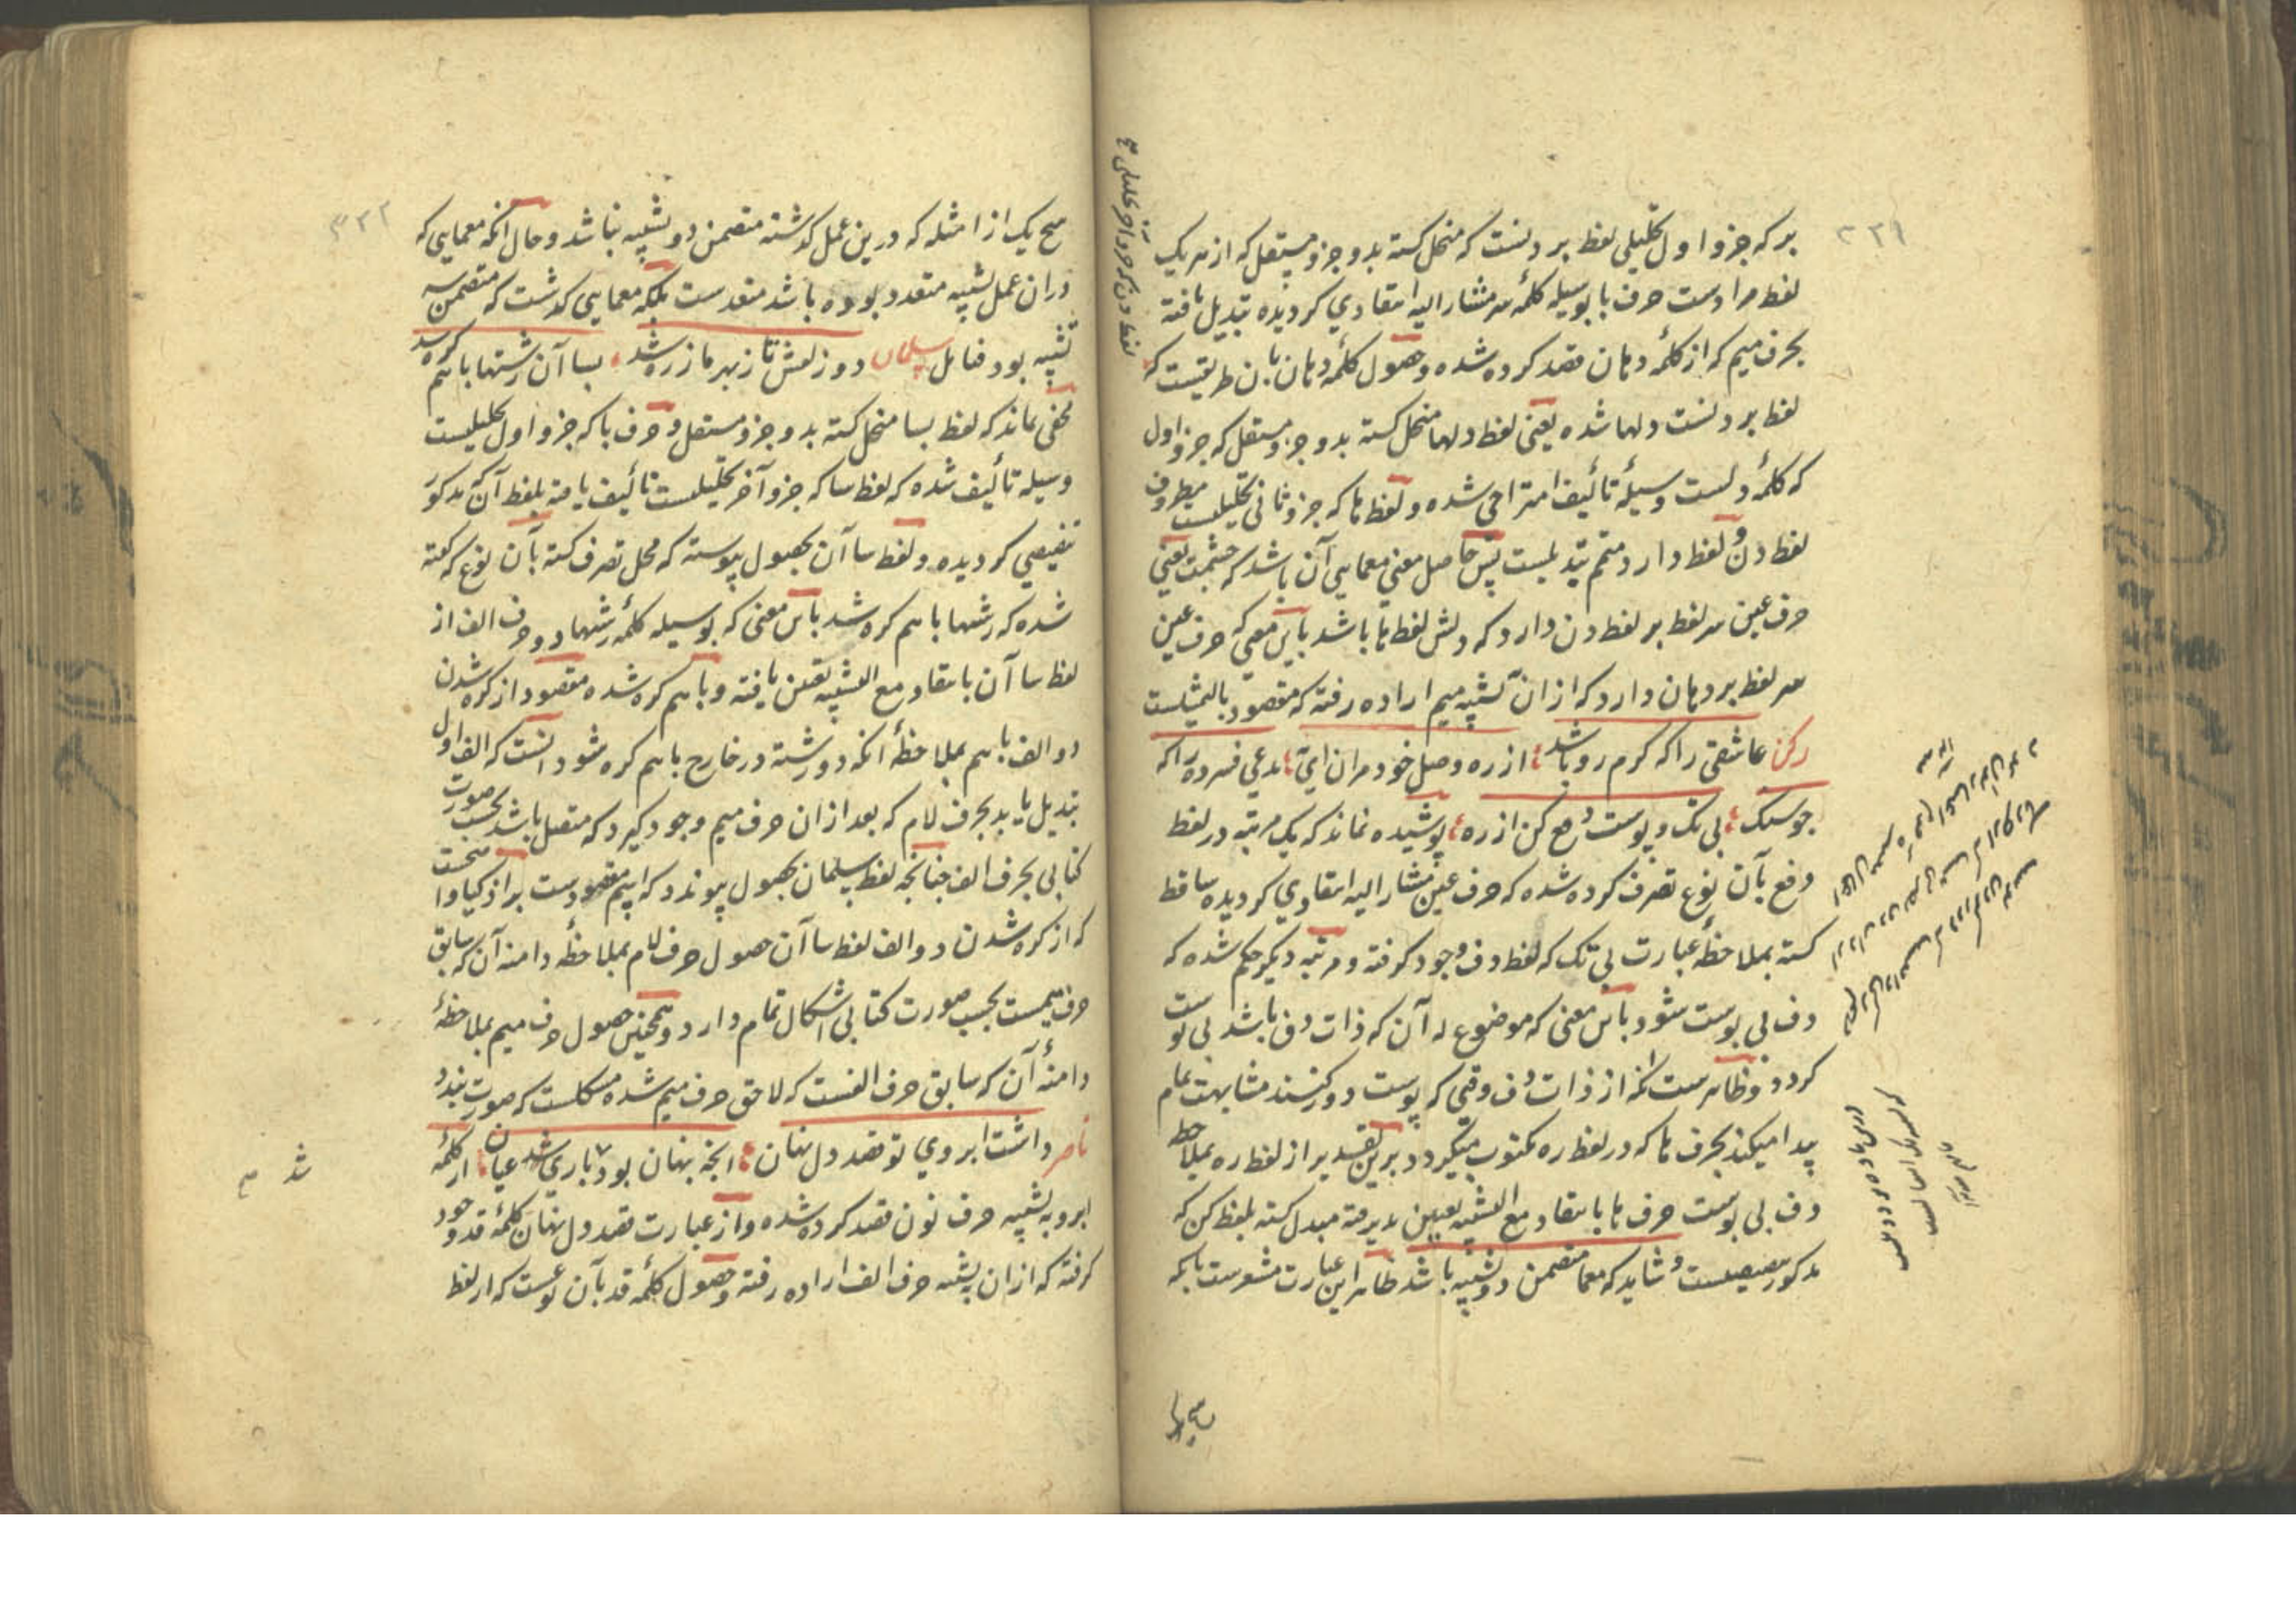 ۲۳۱
بر که جزو اول تحلیلی لفظ بر دلست که منحل کشته بدو جزو مستقل که از هر یک
لفظ مرادست حرف با بوسیله کلمهٔ سر مشار الیه انتقادی کردیده تبدیل یافته
بحرف میم که از کلمهٔ دهان قصد کرده شده و حصول کلمهٔ دهان بان طریقست که
لفظ بر دلست دلها شده یعنی لفظ دلها منحل کشته بدو جزو مستقل که جزو اول
که کلمهٔ دلست وسیلهٔ تألیف امتزاجی شده و لفظ ها که جزو ثانی تحلیلست مظروف
لفظ دن و لفظ دارد متمم تبدیلست پس حاصل معنی معمایی آن باشد که چشمت یعنی
حرف عین سر لفظ بر لفظ دن دارد که دلش لفظ ها باشد باین معنی که حرف عین
سر لفظ بر دهان دارد که از ان تشبیه میم اراده رفته که مقصود بالتمثیلست
رکن عاشقی را که کرم رو باشد از ره وصل خود مران ای مدعی فسرده را که
جو سک بی تک و پوست دفع کن از ره پوشیده نماند که یک مرتبه در لفظ
دفع بآن نوع تصرف کرده شده که حرف عین مشار الیه انتقادی کردیده ساقط
کشته بملاحظهٔ عبارت بی تک که لفظ دف وجود کرفته و مرتبه دیکر حکم شده که
دف بی پوست شود باین معنی که موضوع له آن که ذات دف باشد بی پوست
کردد و ظاهرست که از ذات دف وقتی که پوست دور کنند مشابهت تمام
پیدا میکند بحرف ها که در لفظ ره مکتوب میکردد برین تقدیر از لفظ ره بملاحظه
دف بی پوست حرف ها بانتقاد مع التشبیه تعیین پذیرفته مبدل کشته بلفظ کن که
مذکور تنصیصیست و شاید که معما متضمن دو تشبیه باشد ظاهر این عبارت مشعرست بانکه
هیچ یک از امثله که درین عمل کذشته متضمن دو تشبیه نباشد و حال آنکه معمایی که
دران عمل تشبیه متعدد بوده باشد متعددست بلکه معمایی کذشت که متضمن سه
تشبیه بود فتامل سلمان دو زلفش تا ز بهر ما زره شد بسا آن رشتها با هم کره شد
مخفی نماند که لفظ بسا منحل کشته بدو جزو مستقل و حرف با که جزو اول تحلیلیست
وسیله تألیف شده که لفظ سا که جزو آخر تحلیلیست تألیف یافته بلفظ آن که مذکور
تنصیصی کردیده و لفظ سا آن بحصول پیوسته که محل تصرف کشته بآن نوع که کفته
شده که رشتها با هم کره شد باین معنی که بوسیله کلمهٔ رشتها دو حرف الف از
لفظ سا آن بانتقاد مع التشبیه تعین یافته و با هم کره شده مقصود از کره شدن
دو الف با هم بملاحظهٔ آنکه دو رشته در خارج با هم کره شود آنست که الف اول
تبدیل یابد بحرف لام که بعد از ان حرف میم وجود کیرد که متصل باشد بحسب صورت
کتابی بحرف الف چنانچه لفظ سلمان بحصول پیوندد که اسم مقصودست
که از کره شدن دو الف لفظ سا آن حصول حرف لام بملاحظهٔ دامنه آن که سابق
حرف میمست بحسب صورت کتابی اشکال تمام دارد و همچنین حصول حرف میم بملاحظهٔ
دامنهٔ آن که سابق حرف الفست که لاحق حرف میم شده مشکلست که صورت بندد
ناصر داشت ابروی تو قصد دل نهان آنچه نهان بود باری شد عیان از کلمهٔ
ابرو به تشبیه حرف نون قصد کرده شده و از عبارت قصد دل نهان کلمهٔ قد وجود
کرفته که از ان بتشبیه حرف الف اراده رفته و حصول کلمهٔ قد بآن نوعست که از لفظ